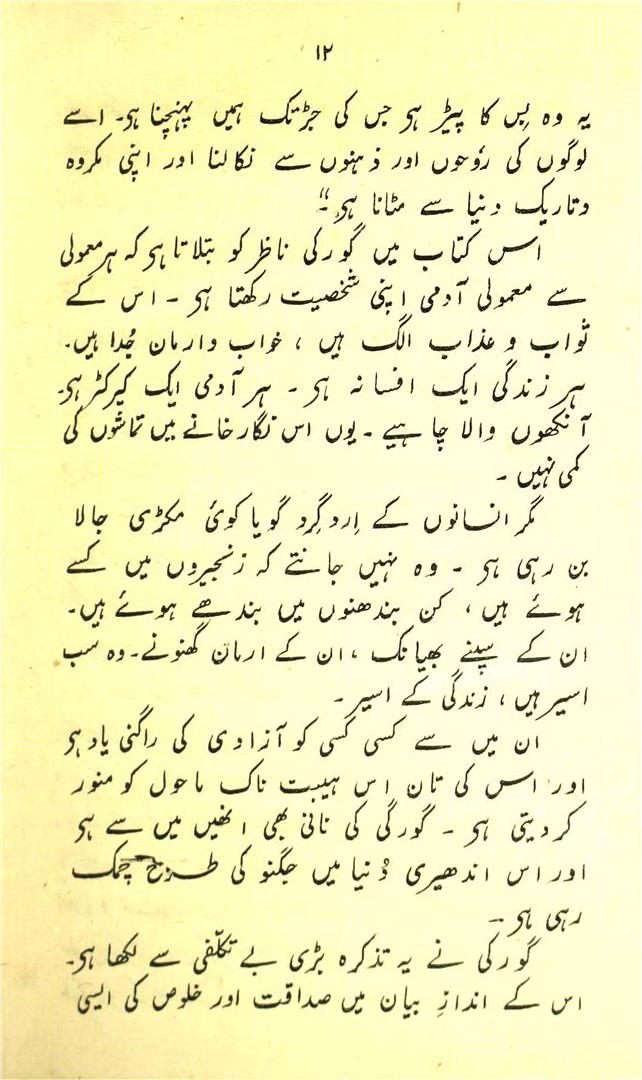 ۱۲
یہ وہ بِس کا پیڑ ہی جس کی جڑ تک ہمیں پہنچنا ہی۔ اسے
لوگوں کی رُوحوں اور ذہنوں سے نکالنا اور اپنی مکروہ
وتاریک دنیا سے مٹانا ہی۔“
اس کتاب میں گورکی ناظر کو بتلاتا ہی کہ ہر معمولی
سے معمولی آدمی اپنی شخصیت رکھتا ہی ۔ اس کے
ثواب و عذاب الگ ہیں ، خواب وارمان جُدا ہیں۔
ہر زندگی ایک افسانہ ہی ۔ ہر آدمی ایک کیرکٹر ہی۔
آنکھوں والا چاہیے ۔ یوں اس نگارخانے میں تماشوں کی
کمی نہیں ۔
مگر انسانوں کے اِرد گِرد گویا کوئی مکڑی جالا
بن رہی ہی ۔ وہ نہیں جانتے کہ زنجیروں میں کسے
ہوئے ہیں ، کن بندھنوں میں بندھے ہوئے ہیں۔
ان کے سپنے بھیانک ، ان کے ارمان گھنونے۔ وہ سب
اسیر ہیں ، زندگی کے اسیر ۔
ان میں سے کسی کسی کو آزادی کی راگنی یاد ہی
اور اس کی تان اس ہیبت ناک ماحول کو منور
کردیتی ہی ۔ گورکی کی نانی بھی انھیں میں سے ہی
اور اس اندھیری دُنیا میں جگنو کی طرح چمک
رہی ہی ۔
گورکی نے یہ تذکرہ بڑی بے تکلّفی سے لکھا ہی۔
اس کے اندازِ بیان میں صداقت اور خلوص کی ایسی